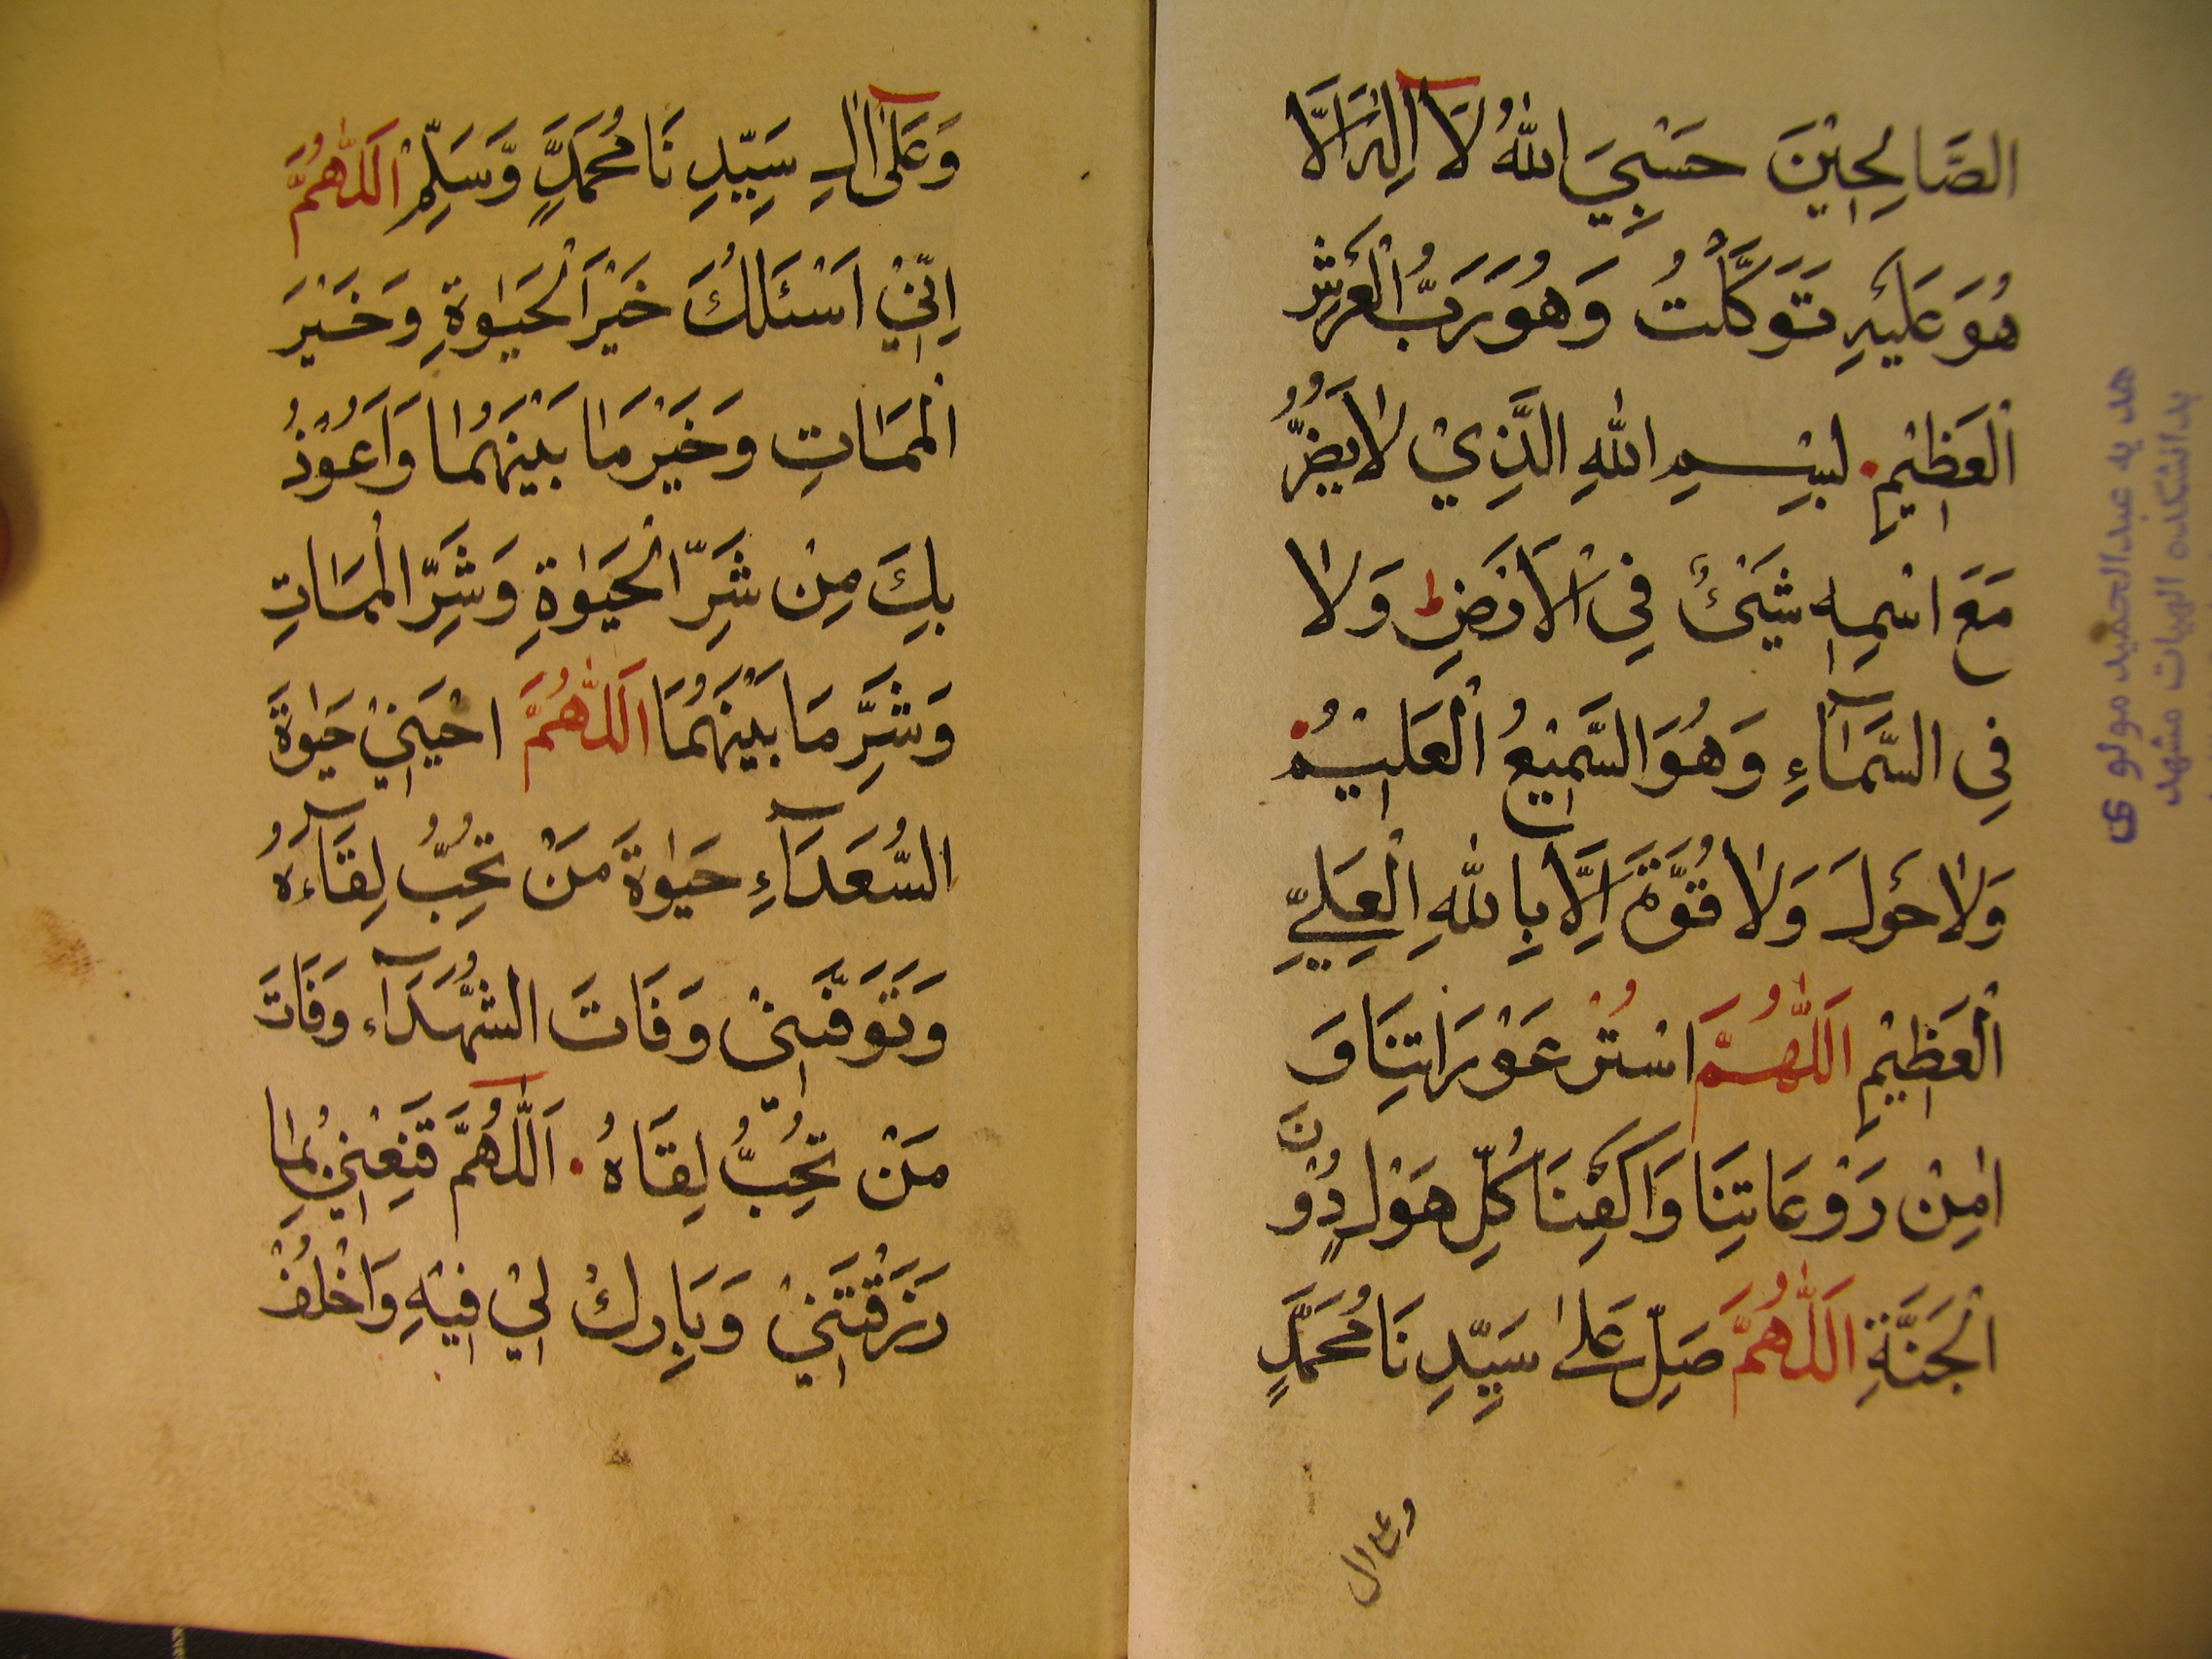 الصَّالِحِيْنَ حَسْبِيَ اللّٰهُ لَآ اِلٰهَ اِلَّا
هُوَ عَلَيْهِ تَوَكَّلْتُ وَهُوَ رَبُّ الْعَرْشِ
الْعَظِيْمِ. بِسْمِ اللّٰهِ الَّذِيْ لَا يَضُرُّ
مَعَ اسْمِهٖ شَيْئٌ فِي الْاَرْضِ ط وَلَا
فِي السَّمَآءِ وَهُوَ السَّمِيْعُ الْعَلِيْمُ
وَلَا حَوْلَ وَلَا قُوَّةَ اِلَّا بِاللّٰهِ الْعَلِيِّ
الْعَظِيْمِ اَللّٰهُمَّ اسْتُرْ عَوْرَاتِنَا وَ
اٰمِنْ رَوْعَاتِنَا وَاكْفِنَا كُلِّ هَوْلٍ دُوْنَ
الْجَنَّةِ اَللّٰهُمَّ صَلِّ عَلٰى سَيِّدِنَا مُحَمَّدٍ
وعلى ال
وَعَلٰٓى اٰلِ سَيِّدِنَا مُحَمَّدٍ وَّسَلِّمْ اَللّٰهُمَّ
اِنِّيْ اَسْئَلُكَ خَيْرَ الْحَيٰوةِ وَخَيْرَ
الْمَمَاتِ وَخَيْرَ مَا بَيْنَهُمَا وَاَعُوْذُ
بِكَ مِنْ شَرِّ الْحَيٰوةِ وَشَرِّ الْمَمَاتِ
وَشَرِّ مَا بَيْنَهُمَا اَللّٰهُمَّ احْيِنِيْ حَيٰوةَ
السُّعَدَآءِ حَيٰوةَ مَنْ تُحِبُّ لِقَآءَهُ
وَتَوَفَّنِيْ وَفَاتَ الشُّهَدَآء وَفَاتَ
مَنْ تُحِبُّ لِقَاهُ. اَللّٰهُمَّ قَنِعْنِيْ بِمَا
رَزَقْتَنِيْ وَبَارِكْ لِيْ فِيْهِ وَاخْلُفْ
هدیه عبدالحمید مولوی
بدانشکده الهیات مشهد